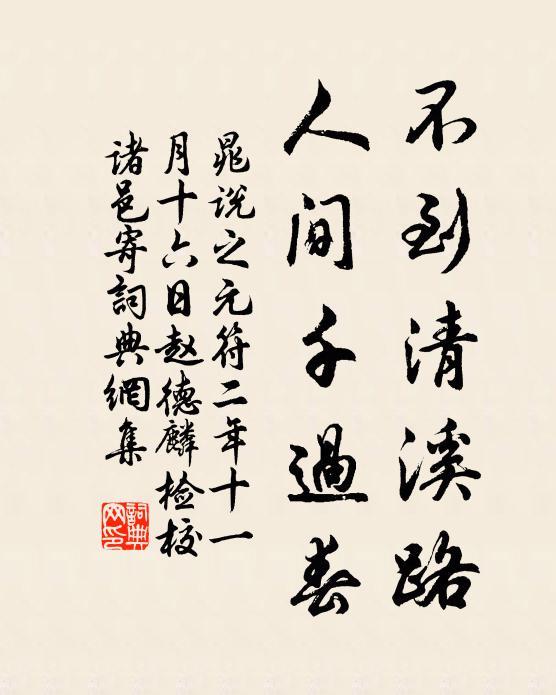 不到清溪路
人间千過春
晁说之元符二年十一
月十六日赵德麟检校
诸邑寄詞典網集
詞典
网印